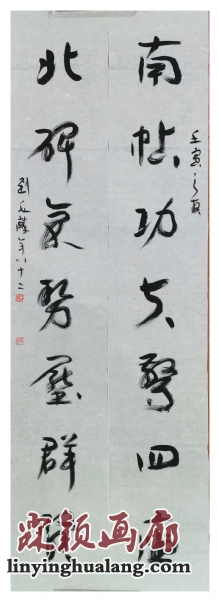 南帖功夫驚四
壬寅之夏
北碑氣勢壓群
年八十二
霖颖画廊
linyinghualang.com